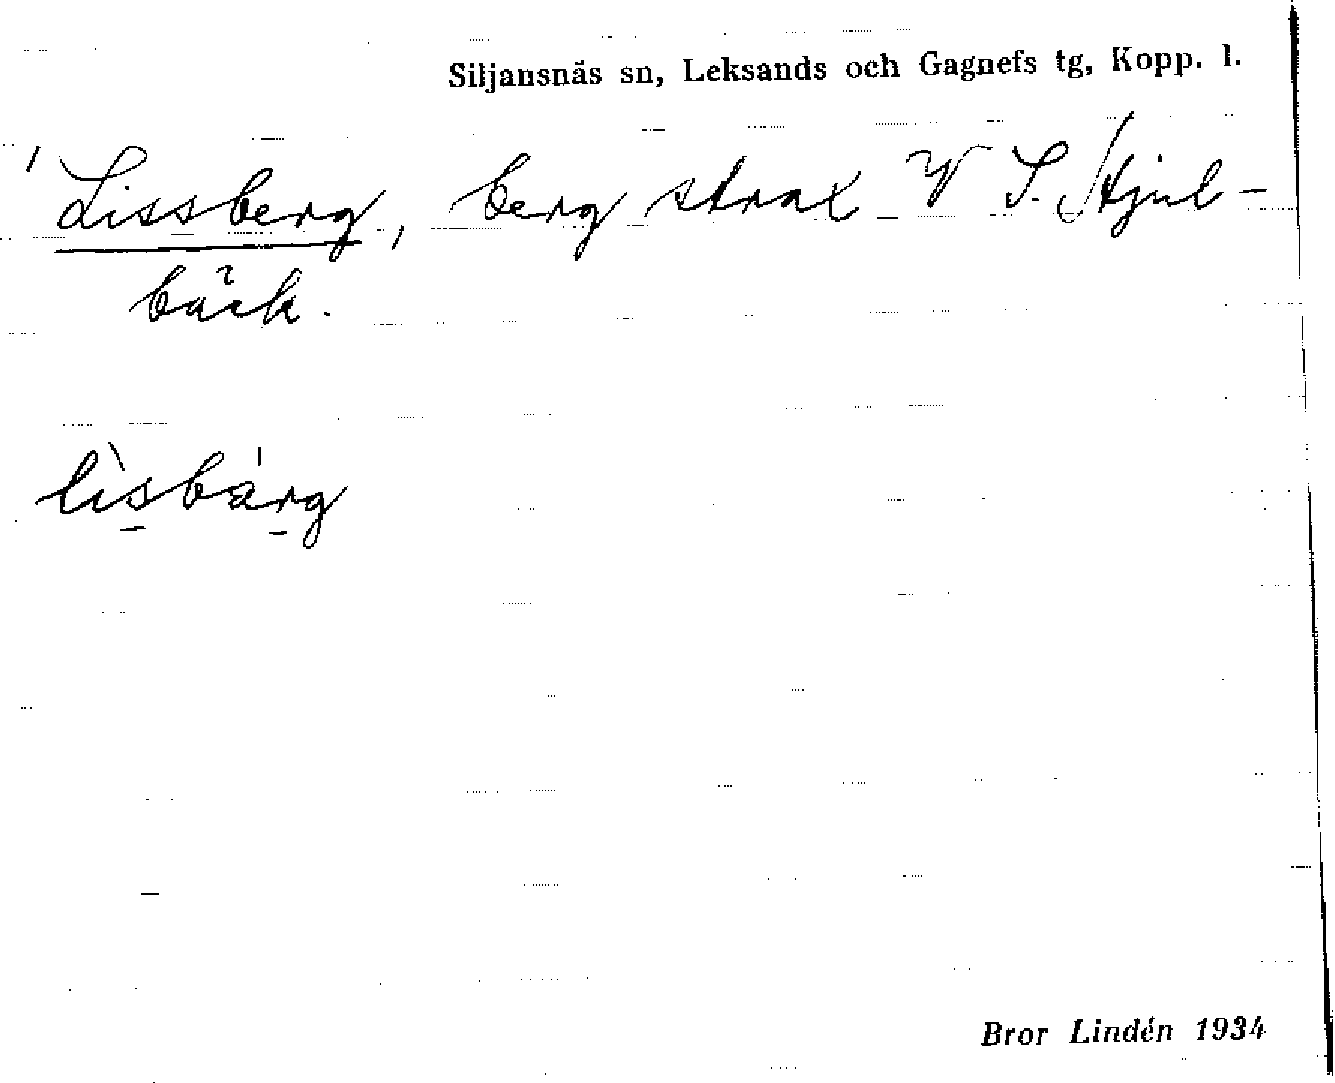 Siljansnäs sn, Leksands och Gagnefs tg, Kopp. l.
' Lissberg, berg strax V S. Hjul-
bäck.
lìsbárg
Bror Lindén 1934